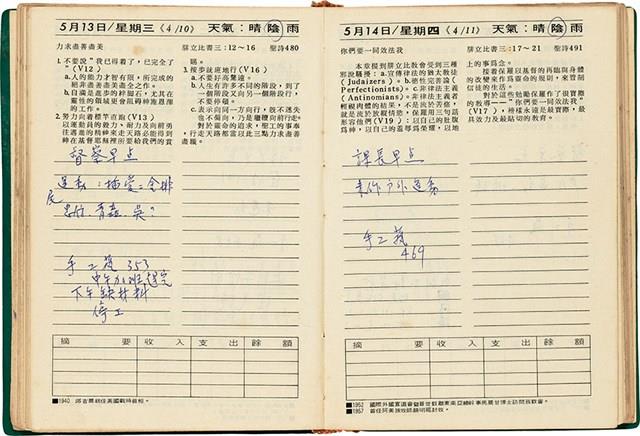 5月13日/星期三《4/10》 天氣:晴陰雨
力求盡善盡美 腓立比書三:12～16 聖詩480
1.不要說“我已得着了,已完全了”(V12)
a.人的能力才智有限,所完成的絕非盡善盡美盡全之作。
b.自滿是進步的神難石,尤其在靈性的領域更會阻碍神施恩澤的工作。
2.努力向着標竿直跑(V13)
以運動員的毅力、耐力及向前勇往邁進的精神來走天路必能得到神在基督耶穌裡所要給我們的賞
賜。
3.按步就班地行(V16)
a.不要好高騖遠。
b.人生有許多不同的階段,到了一個階段又向另一個階段行,不要停頓。
c.表示向同一方向行,故不迷失也不偏向,乃是繼續向前行走。
對於靈命的追求,聖工的事奉,行走天路都當以此三點力求盡善盡美。
督察早点
運動:
手工藝 353
下午缺材料
停工
摘要 收入 支出 餘額
■1940 邱吉爾就任英國戰時首相。
5月14日/星期四《4/11》 天氣:晴陰雨
你們要一同效法我 腓立比書三:17～21 聖詩491
本章提到腓立比教會受到三種邪說騷擾:a.宣傳律法的猶太教徒(Judaizers)。b.德性完善論(Perfectionists)。c.非律法主義者(Antinomians)。非律法主義者輕視肉體的結果,不是流於苦慾,就是流於放縱情慾,保羅用三句話形容他們(V19):以自己的肚腹爲神,以自己的羞辱爲榮耀,以地
上的事爲念。
接着保羅以基督的再臨與身體的改變來作爲救命的規則,來管制信徒的生活。
對於這些勉勵保羅作了很實際的教導──“你們要一同效法我”(V17),辨樣永遠是最實際,最具效力及最貼切的教育。
課長早点
手工藝
469
摘要 收入 支出 餘額